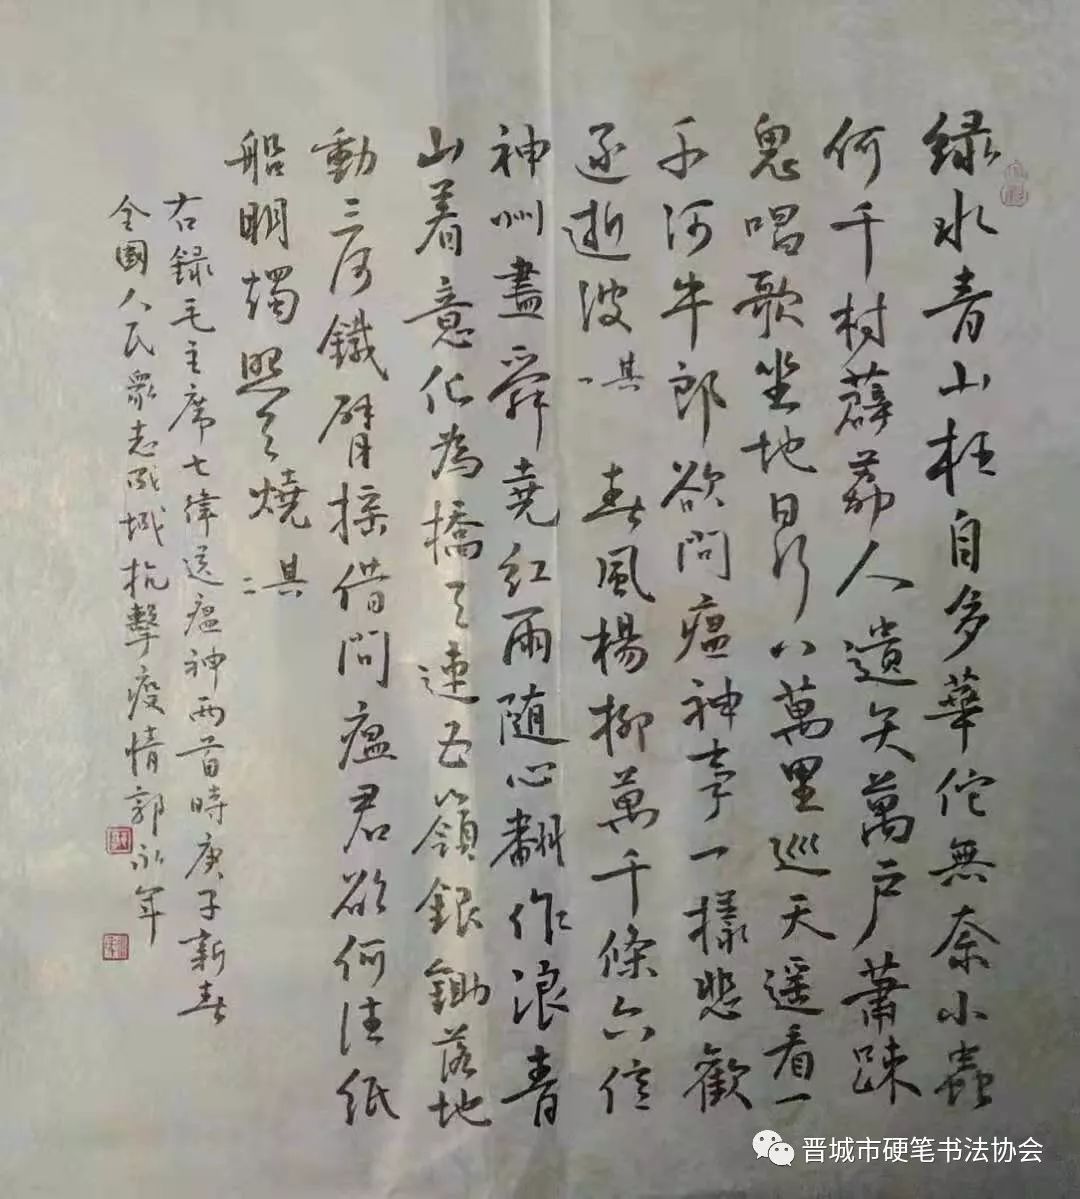 緑水青山枉自多華佗無奈小蟲
何千村薜荔人遺矢萬户蕭疎
鬼唱歌坐地日行八萬里巡天遥看一
千河牛郎欲問瘟神事一樣悲歡
逐逝波其一 春風楊柳萬千條六億
神州盡舜堯紅雨随心翻作浪青
山着意化為橋天連五嶺銀鋤落地
動三河鐵臂摇借問瘟君欲何往紙
船明燭照天燒其二
右録毛主席七律送瘟神两首時庚子新春
全國人民衆志成城抗擊疫情郭永年
晋城市硬笔书法协会